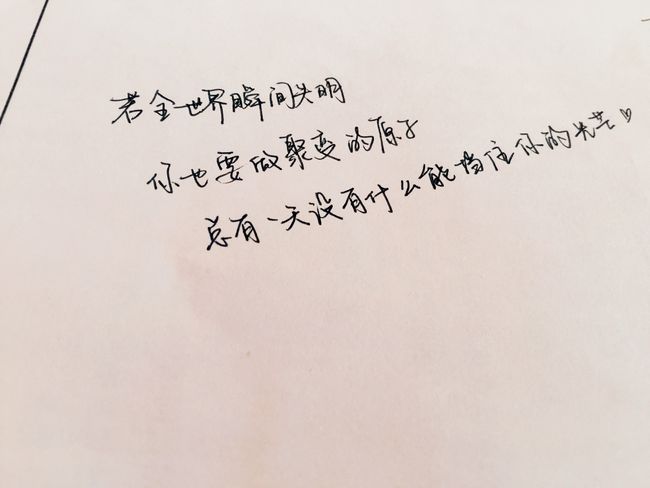 若全世界瞬间失明
你也要做聚变的原子
总有一天没有什么能挡住你的光芒♡